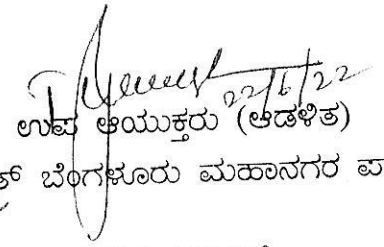 22/6/22
ಉಪ ಆಯುಕ್ತರು (ಆಡಳಿತ)
ಬೆಂಗಳೂರು ಮಹಾನಗರ ಪ